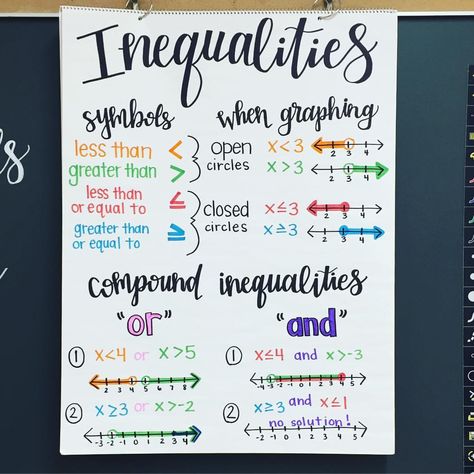 Inequalities
symbols
less than <
greater than >
less than
or equal to ≤
greater than
or equal to ≥
open
circles
closed
circles
when graphing
x<3
2 3 4
x>3
2 3 4
x≤3
2 3 4
x≥3
2 3 4
compound inequalities
"or"
① x<4 or x>5
2 3 4 5 6 7 8
② x≥3 or x>-2
-3 -2 -1 0 1 2 3 4
"and"
① x≤4 and x>-3
-4 -3 -2 -1 0 1 2 3 4 5
② x≥3 and x≤1
no solution!
-2 -1 0 1 2 3 4 5